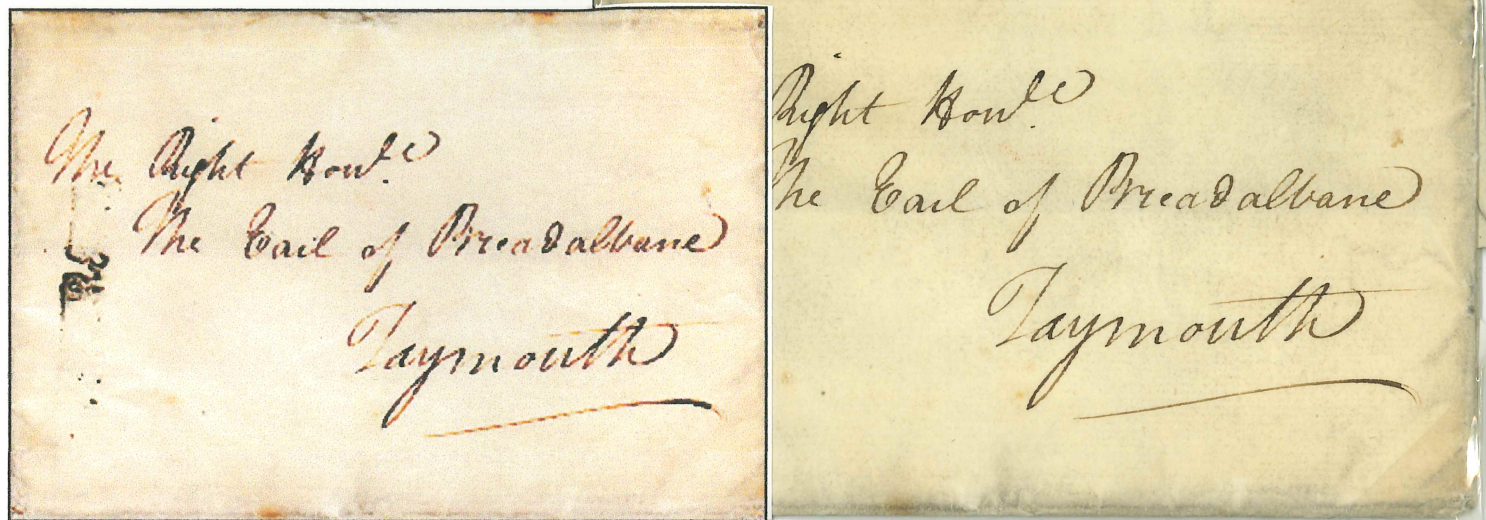 The Right Honᵇˡᵉ
The Earl of Breadalbane
Taymouth
Right Honᵇˡᵉ
The Earl of Breadalbane
Taymouth